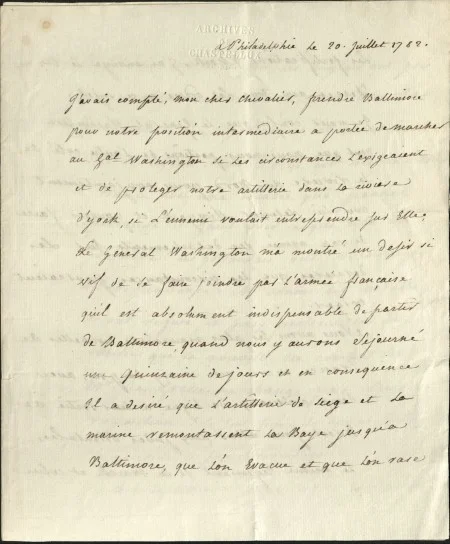 ARCHIVES
à Philadelphie le 20. Juillet 1782.
J'avais compté, mon cher chevalier, prendre Baltimore
pour notre position intermediaire a portée de marcher
au Gal. Washington si les circonstances l'exigeaient
et de proteger notre artillerie dans la riviere
d'york, si L'ennemi voulait entreprendre sur Elle.
Le General Washington m'a montré un desir si
vif de se faire joindre par l'armée française
qu'il est absolument indispensable de partir
de Baltimore, quand nous y aurons Sejourné
une Quinzaine de jours et en consequence
Il a desiré que L'artillerie de siege et La
marine remontassent La Baye jusqu'a
Baltimore, que L'on Evacue et que L'on rase